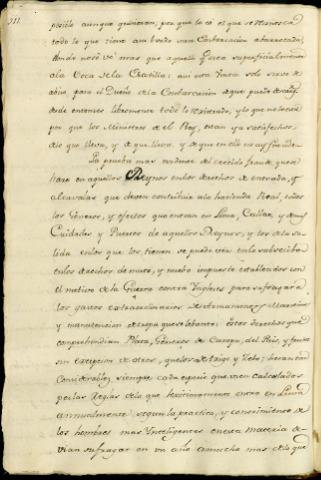 posible aunque quisieran; por que lo es el que se reconosca
todo lo que tiene a su bordo una Embarcacion abarrotada,
donde no se ve mas que aquello que esta superficialmente
a la Voca de la Escotilla: asi esta Visita solo sirve de
abiso para el Dueño de la Embarcacion a que puede
desde entonces libremente todo lo
por que los Ministros de el Rey, estan ya satisfechos,
de que lleva, y de que llevo, y de que en ello no ay fraude.
La prueba mas evidente del crecido fraude que se
hace en aquellos Reynos en los derechos de entrada, y
alcavalas que deven contribuir a la hacienda Real, todos
los Generos, y efectos que entran en Lima, Callao, y demas
Ciudades y Puertos de aquellos Reynos, y los de la sa-
lida en los que los tienen se puede ver en lo
en los derechos de nuevo, y nuevo impuesto establecidos con
el motivo de la Guerra contra Yngleses para sufragar a
los gastos extraordinarios de Armamentos Maritimos
y manutencion de tropa que se lebanto: Estos derechos que
comprehendian Plata, Generos de Europa, del Pais, y frutos
sin excepcion de otros, que los de trigo y Sebo; heran tan
Considerables, siempre cada especie que viene calculados
por las Reglas de lo que lexitimamente entra en Lima
annualmente, segun la practica, y conocimiento de
los hombres mas Ynteligentes en esta materia de-
vian sufragar en un año a mucho mas de lo que